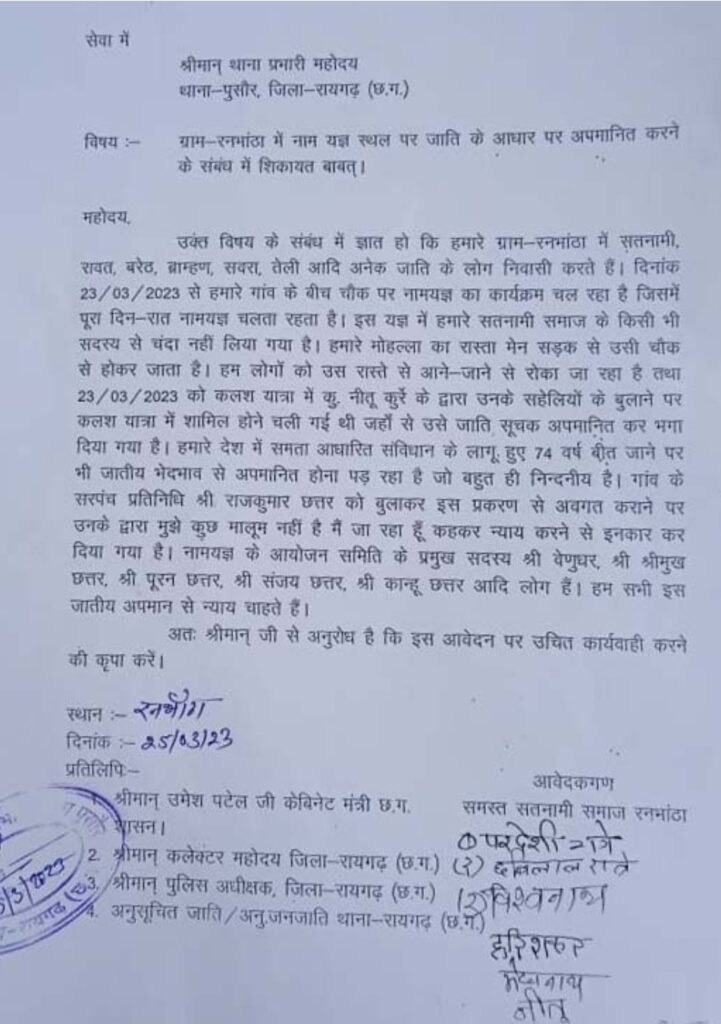 सेवा में
श्रीमान् थाना प्रभारी महोदय
थाना–पुसौर, जिला–रायगढ़ (छ.ग.)
विषय :– ग्राम–रनभांठा में नाम यज्ञ स्थल पर जाति के आधार पर अपमानित करने
के संबंध में शिकायत बाबत्।
महोदय,
उक्त विषय के संबंध में ज्ञात हो कि हमारे ग्राम–रनभांठा में सतनामी,
रावत, बरेठ, ब्राम्हण, सवरा, तेली आदि अनेक जाति के लोग निवासी करते हैं। दिनांक
23/03/2023 से हमारे गांव के बीच चौक पर नामयज्ञ का कार्यक्रम चल रहा है जिसमें
पूरा दिन–रात नामयज्ञ चलता रहता है। इस यज्ञ में हमारे सतनामी समाज के किसी भी
सदस्य से चंदा नहीं लिया गया है। हमारे मोहल्ला का रास्ता मेन सड़क से उसी चौक
से होकर जाता है। हम लोगों को उस रास्ते से आने–जाने से रोका जा रहा है तथा
23/03/2023 को कलश यात्रा में कु. नीतू कुर्रे के द्वारा उनके सहेलियों के बुलाने पर
कलश यात्रा में शामिल होने चली गई थी जहाँ से उसे जाति सूचक अपमानित कर भगा
दिया गया है। हमारे देश में समता आधारित संविधान के लागू हुए 74 वर्ष बीत जाने पर
भी जातीय भेदभाव से अपमानित होना पड़ रहा है जो बहुत ही निन्दनीय है। गांव के
सरपंच प्रतिनिधि श्री राजकुमार छत्तर को बुलाकर इस प्रकरण से अवगत कराने पर
उनके द्वारा मुझे कुछ मालूम नहीं है मैं जा रहा हूँ कहकर न्याय करने से इनकार कर
दिया गया है। नामयज्ञ के आयोजन समिति के प्रमुख सदस्य श्री वेणुधर, श्री श्रीमुख
छत्तर, श्री पूरन छत्तर, श्री संजय छत्तर, श्री कान्हू छत्तर आदि लोग हैं। हम सभी इस
जातीय अपमान से न्याय चाहते हैं।
अतः श्रीमान् जी से अनुरोध है कि इस आवेदन पर उचित कार्यवाही करने
की कृपा करें।
स्थान :–
दिनांक :– 25/03/23
प्रतिलिपिः–
श्रीमान् उमेश पटेल जी केबिनेट मंत्री छ.ग.
शासन।
2. श्रीमान् कलेक्टर महोदय जिला–रायगढ़ (छ.ग.)
3. श्रीमान् पुलिस अधीक्षक, जिला–रायगढ़ (छ.ग.)
4. अनुसूचित जाति/अनु.जनजाति थाना–रायगढ़ (छ.ग.)
आवेदकगण
समस्त सतनामी समाज रनभांठा
परदेशी रात्रे
(२) छबिलाल रात्रे
विश्वनाथ
नीतू